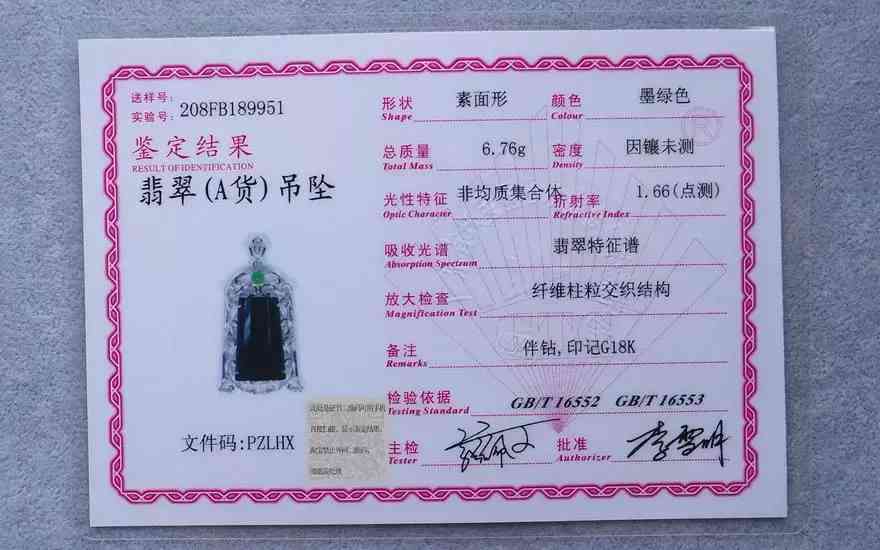 送样号:
实验号: 208FB189951
鉴定结果
RESULT OF IDENTIFICATION
翡翠(A货)吊坠
文件码:PZLHX
形状 素面形 颜色 墨绿色
Shape Colour
总质量 6.76g 密度 因镶未测
Total Mass Density
光性特征 非均质集合体 折射率 1.66(点测)
Optic Character Refractive Index
吸收光谱 翡翠特征谱
Absorption Spectrum
放大检查 纤维柱粒交织结构
Magnification Test
备注 伴钻,印记G18K
Remarks
检验依据 GB/T 16552 GB/T 16553
Testing Standard
主检 批准
Tester Authorizer